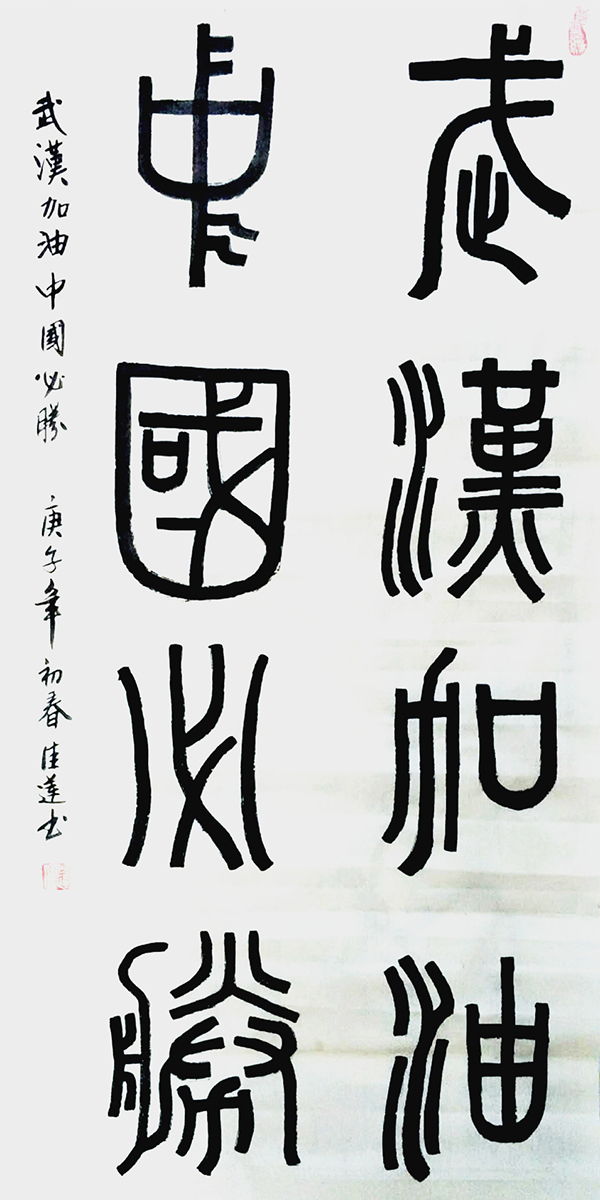 武漢加油
中國必勝
武漢加油中國必勝 庚子年初春佳蓮书